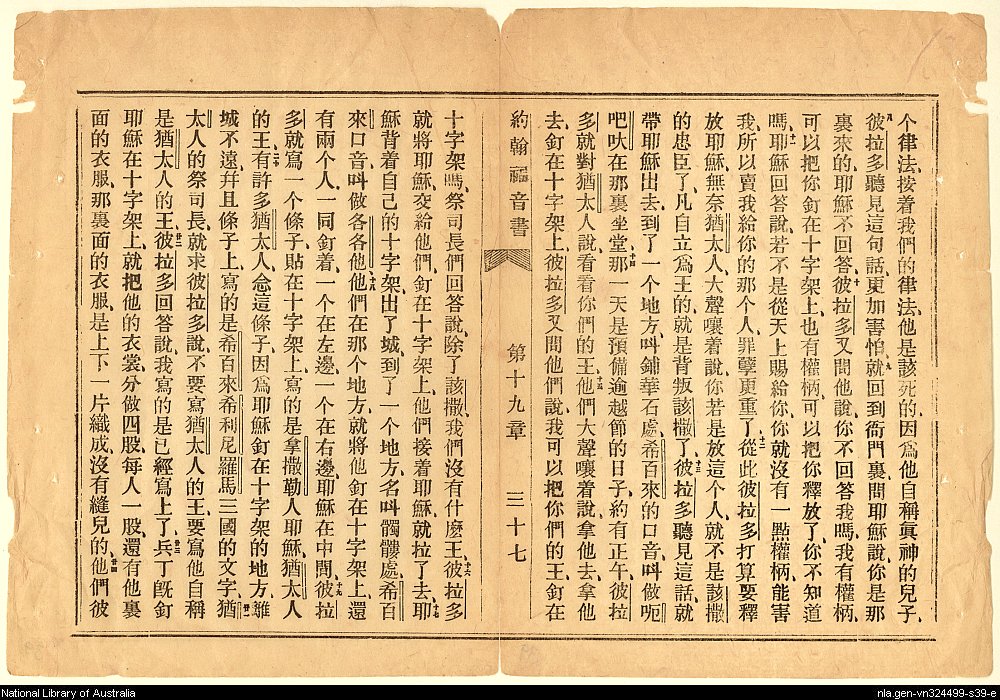 个律法、按着我們的律法、他是該死的、因爲他自稱眞神的兒子、
八彼拉多聽見這句話、更加害怕、九就回到衙門裏、問耶穌說、你是那
裏來的、耶穌不回答、十彼拉多又問他說、你不回答我嗎、我有權柄、
可以把你釘在十字架上、也有權柄、可以把你釋放了、你不知道
嗎、十一耶穌回答說、若不是從天上賜給你、你就沒有一點權柄、能害
我、所以賣我給你的那个人、罪孽更重了、十二從此彼拉多打算要釋
放耶穌、無奈猶太人、大聲嚷着說、你若是放這个人、就不是該撒
的忠臣了、凡自立爲王的、就是背叛該撒了、十三彼拉多聽見這話、就
帶耶穌出去、到了一个地方、叫鋪華石處、希百來的口音、叫做呃
吧吠、在那裏坐堂、十四那一天是預備逾越節的日子、約有正午、彼拉
多就對猶太人說、看看你們的王、十五他們大聲嚷着說、拿他去、拿他
去、釘在十字架上、彼拉多又問他們說、我可以把你們的王釘在
約翰福音書
第十九章
三十七
十字架嗎、祭司長們回答說、除了該撒、我們沒有什麽王、十六彼拉多
就將耶穌交給他們、釘在十字架上、他們接着耶穌就拉了去、十七耶
穌背着自己的十字架、出了城、到了一个地方、名叫髑髏處、希百
來口音、叫做各各他、十八他們在那个地方、就將他釘在十字架上、還
有兩个人、一同釘着、一个在左邊、一个在右邊、耶穌在中間、十九彼拉
多就寫一个條子、貼在十字架上、寫的是拿撒勒人耶穌、猶太人
的王、二十有許多猶太人、念這條子、因爲耶穌釘在十字架的地方、離
城不遠、并且條子上寫的、是希百來希利尼羅馬三國的文字、廿一猶
太人的祭司長、就求彼拉多說、不要寫猶太人的王、要寫他自稱
是猶太人的王、廿二彼拉多回答說、我寫的是已經寫上了、廿三兵丁旣釘
耶穌在十字架上、就把他的衣裳分做四股、每人一股、還有他裏
面的衣服、那裏面的衣服、是上下一片織成、沒有縫兒的、廿四他們彼
National Library of Australia
nla.gen-vn324499-s39-e